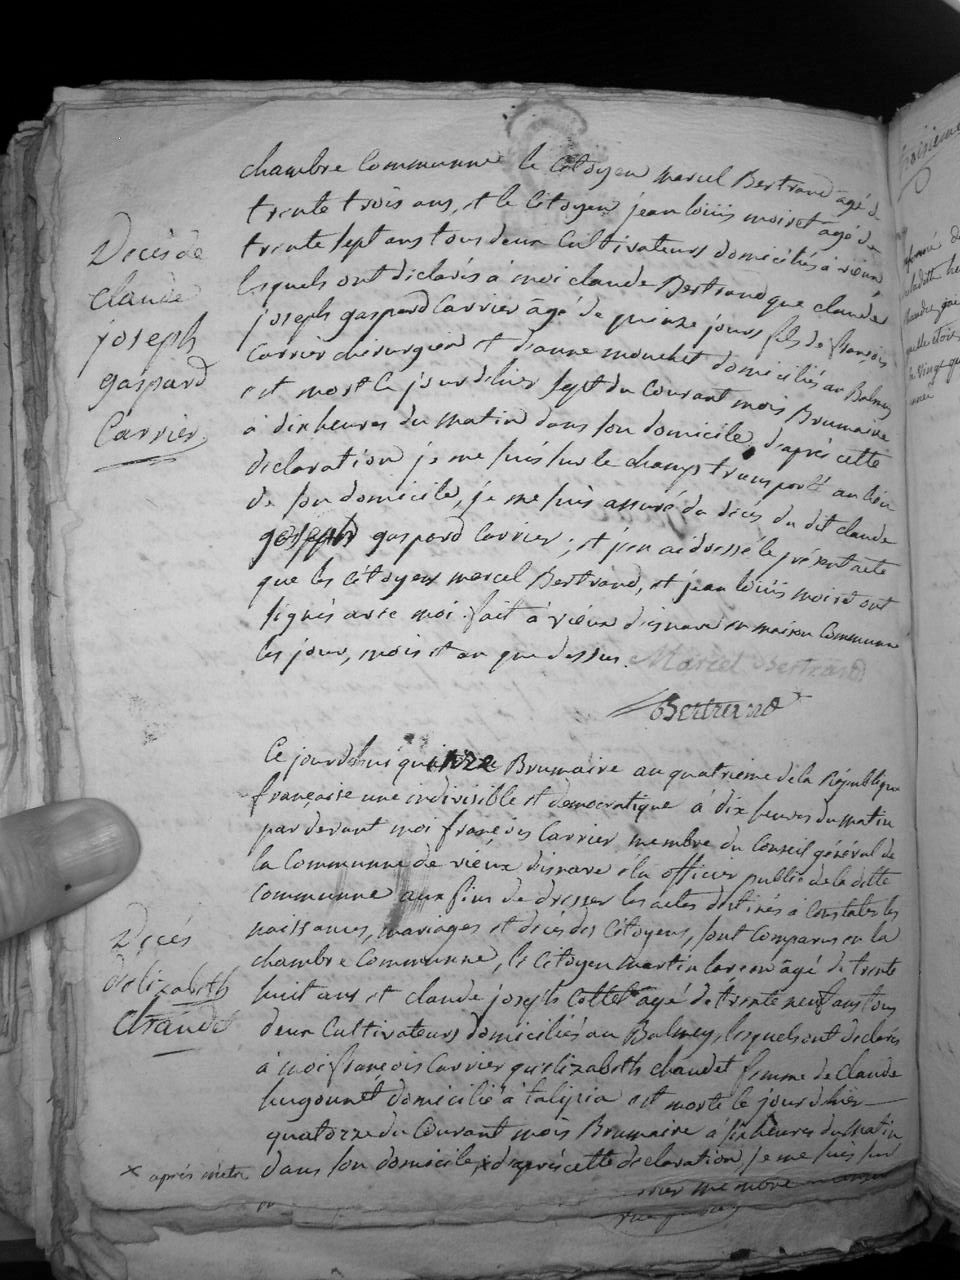 chambre Communne le Citoyen marcel Bertrand âgé de
trente trois ans, et le Citoyen jean louis moiret âgé de
trente sept ans tous deux Cultivateurs domiciliés à vieux
lesquels ont déclarés à moi claude Bertrand que claude
joseph gaspard Carrier âgé de quinze jours fils de françois
Carrier chirurgien et d'anne mouchet domiciliés au Balmey
est mort le jour d'hier sept du Courant mois Brumaire
à dix heures du matin dans son domicile, d'après cette
déclaration je me suis sur le champs transporté au lieu
de son domicile, je me suis assuré du décès du dit claude
joseph gaspard Carrier, et j'en ai dressé le présent acte
que les citoyens marcel Bertrand, et jean louis moiret ont
signés avec moi. fait à vieux d'isnave en maison Communne
les jour, mois et an que dessus. Marcel Bertrand
Bertrand
Décès de
claude
joseph
gaspard
Carrier
Ce jourd'hui quinze Brumaire an quatrième de la République
françoise une indivisible et démocratique à dix heures du matin
par devant moi françois Carrier membre du Conseil général de
la Communne de vieux d'isnave élu officier public de la ditte
Communne aux fins de dresser les actes destinés à constater les
naissances, mariages et décès des Citoyens, sont Comparus en la
chambre Communne, le Citoyen martin âgé de trente
huit ans et claude joseph Collet âgé de trente neuf ans tous
deux Cultivateurs domiciliés au Balmey, lesquels ont déclarés
à moi françois Carrier qu'elizabeth chaudet femme de claude
hugonnet domicilié à talipia est morte le jour d'hier
quatorze du Courant mois Brumaire à six heures du matin
dans son domicile, x d'après cette déclaration, je me suis sur
Décès
d'elizabeth
Chaudet
x après